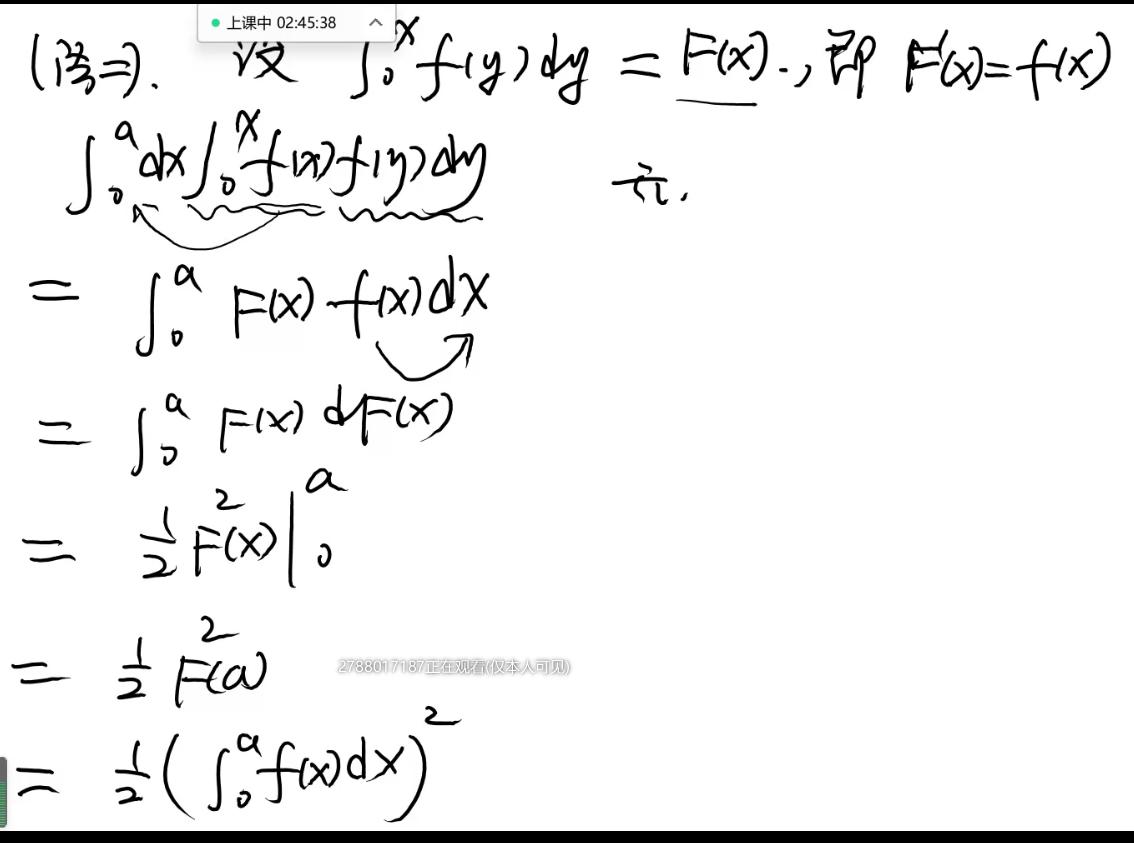 上课中 02:45:38
(法二). 设 ∫₀ˣ f(y)dy = F(x)., 即 F'(x)=f(x)
∫₀ᵃ dx ∫₀ˣ f(x)f(y)dy
= ∫₀ᵃ F(x)·f(x)dx
= ∫₀ᵃ F(x) dF(x)
= 1/2 F²(x)|₀ᵃ
= 1/2 F²(a)
2788017187正在观看(仅本人可见)
= 1/2 (∫₀ᵃ f(x)dx)²